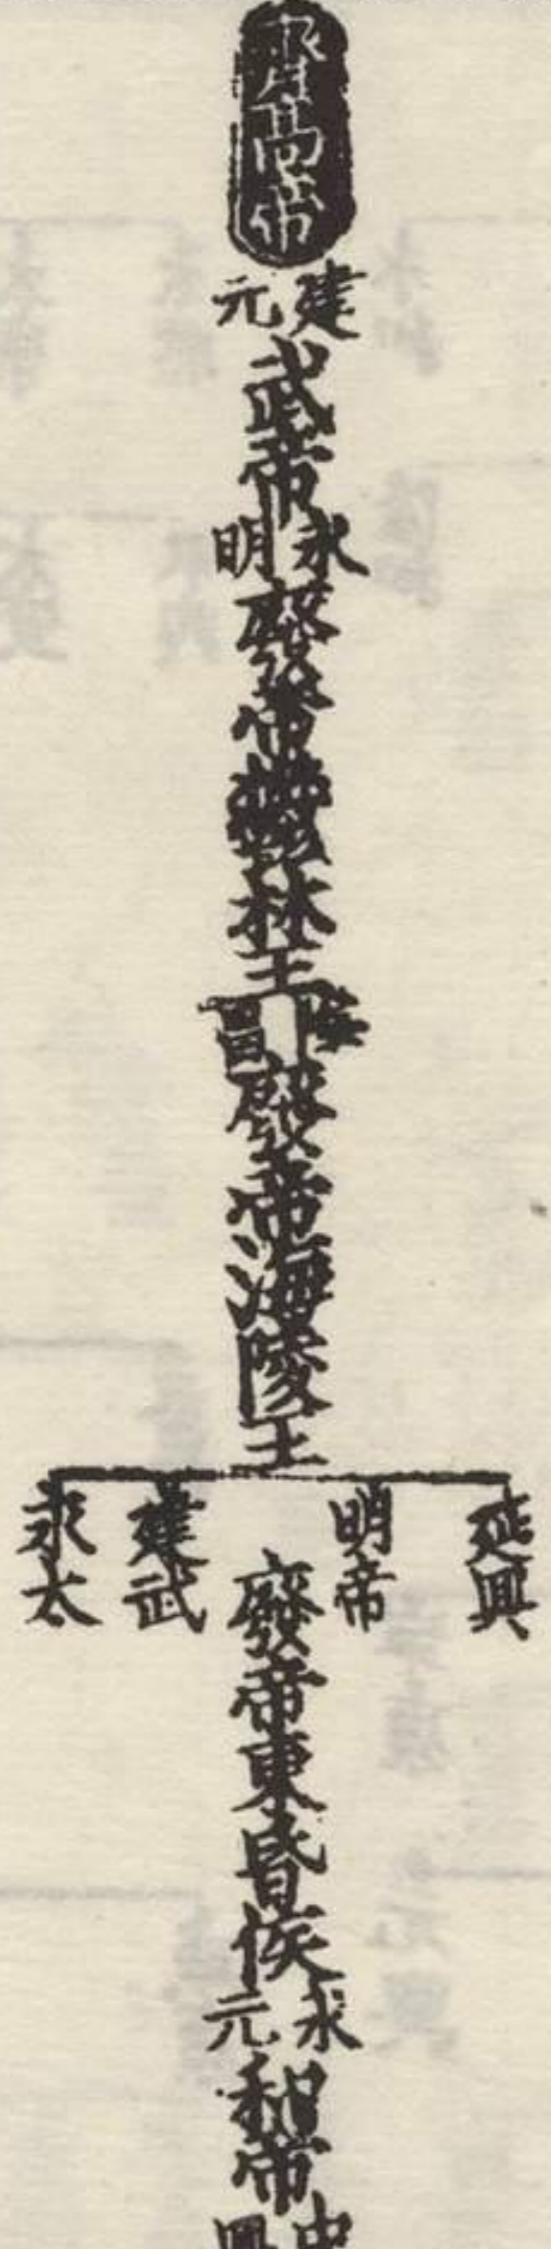 齊高帝
建元
武帝
永明
廢帝鬱林王
隆昌
廢帝海陵王
延興
明帝
建武
永太
廢帝東昏侯
永元
和帝
中興